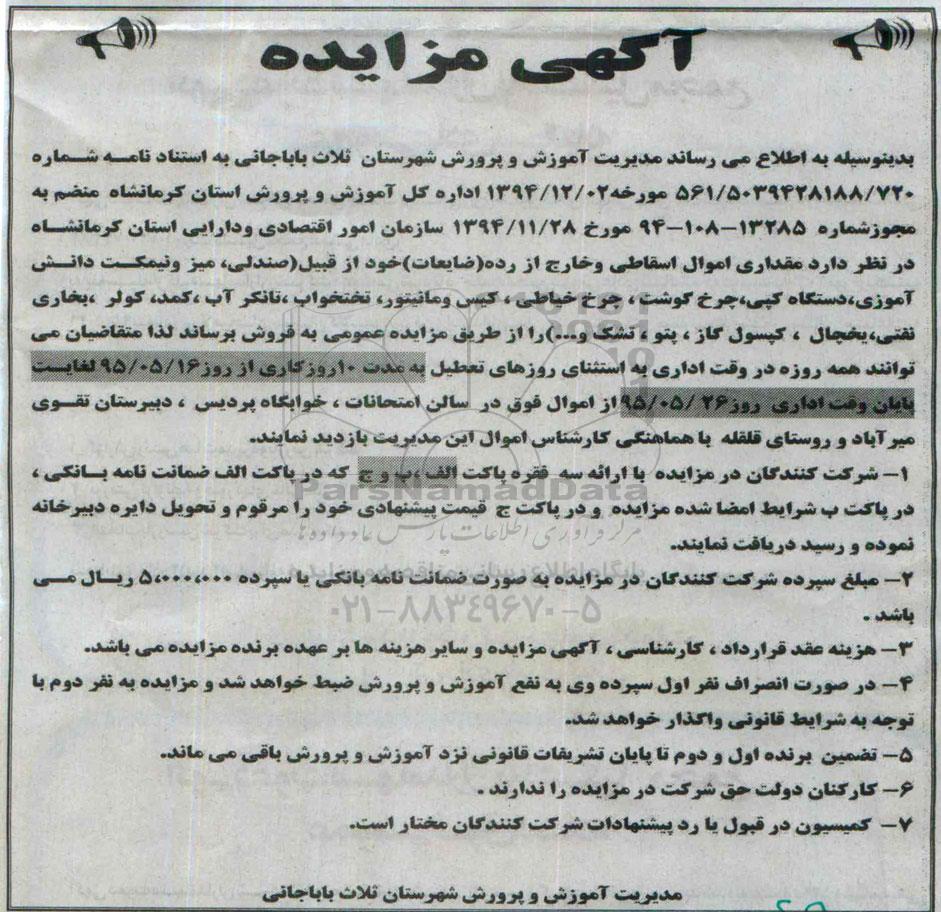 آگهی مزایده
بدینوسیله به اطلاع می رساند مدیریت آموزش و پرورش شهرستان ثلاث باباجانی به استناد نامه شماره
۵۶۱/۵۰۳۹۴۲۸۱۸۸/۷۲۰ مورخه۱۳۹۴/۱۲/۰۲ اداره کل آموزش و پرورش استان کرمانشاه منضم به
مجوزشماره ۱۳۲۸۵-۱۰۸-۹۴ مورخ ۱۳۹۴/۱۱/۲۸ سازمان امور اقتصادی ودارایی استان کرمانشاه
در نظر دارد مقداری اموال اسقاطی وخارج از رده(ضایعات)خود از قبیل(صندلی، میز ونیمکت دانش
آموزی،دستگاه کپی،چرخ گوشت ، چرخ خیاطی ، کیس ومانیتور، تختخواب ،تانکر آب ،کمد، کولر ،بخاری
نفتی،یخچال ، کپسول گاز ، پتو ، تشک و...)را از طریق مزایده عمومی به فروش برساند لذا متقاضیان می
توانند همه روزه در وقت اداری به استثنای روزهای تعطیل به مدت ۱۰روزکاری از روز۹۵/۰۵/۱۶ لغایت
پایان وقت اداری روز۹۵/۰۵/۲۶ از اموال فوق در سالن امتحانات ، خوابگاه پردیس ، دبیرستان تقوی
میرآباد و روستای قلقله با هماهنگی کارشناس اموال این مدیریت بازدید نمایند.
۱- شرکت کنندگان در مزایده با ارائه سه فقره پاکت الف ،ب و ج که در پاکت الف ضمانت نامه بانکی ،
در پاکت ب شرایط امضا شده مزایده و در پاکت ج قیمت پیشنهادی خود را مرقوم و تحویل دایره دبیرخانه
نموده و رسید دریافت نمایند.
۲- مبلغ سپرده شرکت کنندگان در مزایده به صورت ضمانت نامه بانکی یا سپرده ۵،۰۰۰،۰۰۰ ریال می
باشد .
۳- هزینه عقد قرارداد ، کارشناسی ، آگهی مزایده و سایر هزینه ها بر عهده برنده مزایده می باشد.
۴- در صورت انصراف نفر اول سپرده وی به نفع آموزش و پرورش ضبط خواهد شد و مزایده به نفر دوم با
توجه به شرایط قانونی واگذار خواهد شد.
۵- تضمین برنده اول و دوم تا پایان تشریفات قانونی نزد آموزش و پرورش باقی می ماند.
۶- کارکنان دولت حق شرکت در مزایده را ندارند .
۷- کمیسیون در قبول یا رد پیشنهادات شرکت کنندگان مختار است.
مدیریت آموزش و پرورش شهرستان ثلاث باباجانی
ParsNamadData
مرکز فرآوری اطلاعات پارس نماد داده ها
۰۲۱-۸۸۳۴۹۶۷۰-۵